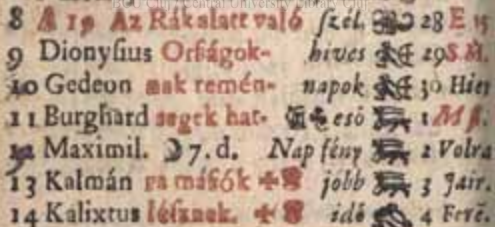 8 A 19 Az Rák alatt való szél. 28 E 15
9 Dionyſius Orſágok- hives 29 S. M.
10 Gedeon nak remén- napok 30 Hier
11 Burghard segek hat- eső 1
12 Maximil. 7. d. Nap fény 2 Volra
13 Kalmán ra máſók jobb 3 Jair.
14 Kalixtus léſznek. idő 4 Ferē.